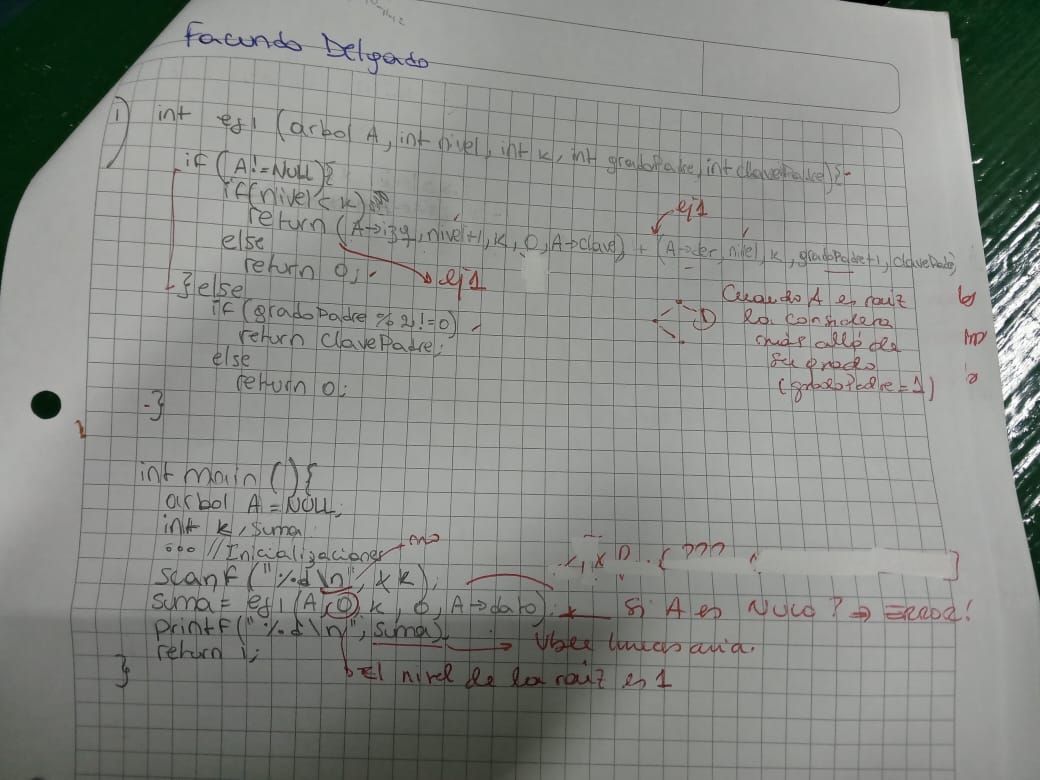 Facundo Delgado
1) int ej1 (arbol A, int nivel, int k, int gradoPadre, int clavePadre){
if (A!=NULL){
if(nivel<k)
return (A→izq, nivel+1, k, 0, A→clave) + (A→der, nivel, k, gradoPadre+1, clavePadre)
ej1
else
return 0;
ej1
}else
if (gradoPadre % 2!=0)
return clavePadre;
else
return 0;
}
Cuando A es raiz
la considera
mas allá de
su grado
(gradoPadre=1)
int main (){
arbol A = NULL;
int k, suma
ooo //Inicializaciones
no
scanf ("%d\n", &k);
suma = ej1 (A, 0, k, 0, A→dato);
Si A es NULO? ⇒ ERROR!
printf ("%d\n", suma);
return 1;
}
El nivel de la raiz es 1